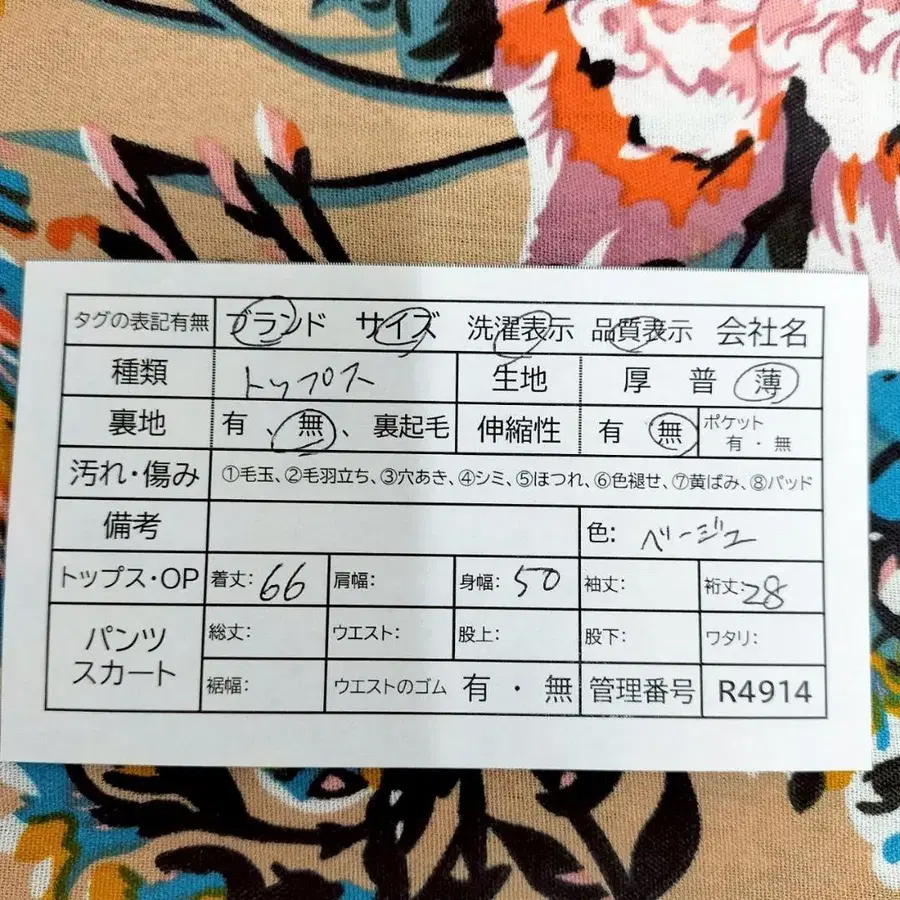 タグの表記有無 ブランド サイズ 洗濯表示 品質表示 会社名
種類 トップス 生地 厚 普 薄
裏地 有 、 無 、 裏起毛 伸縮性 有 無 ポケット 有・無
汚れ・傷み ①毛玉、②毛羽立ち、③穴あき、④シミ、⑤ほつれ、⑥色褪せ、⑦黄ばみ、⑧パッド
備考 色: ベージュ
トップス・OP 着丈: 66 肩幅: 身幅: 50 袖丈: 裄丈: 28
パンツ スカート 総丈: ウエスト: 股上: 股下: ワタリ:
裾幅: ウエストのゴム 有 ・ 無 管理番号 R4914